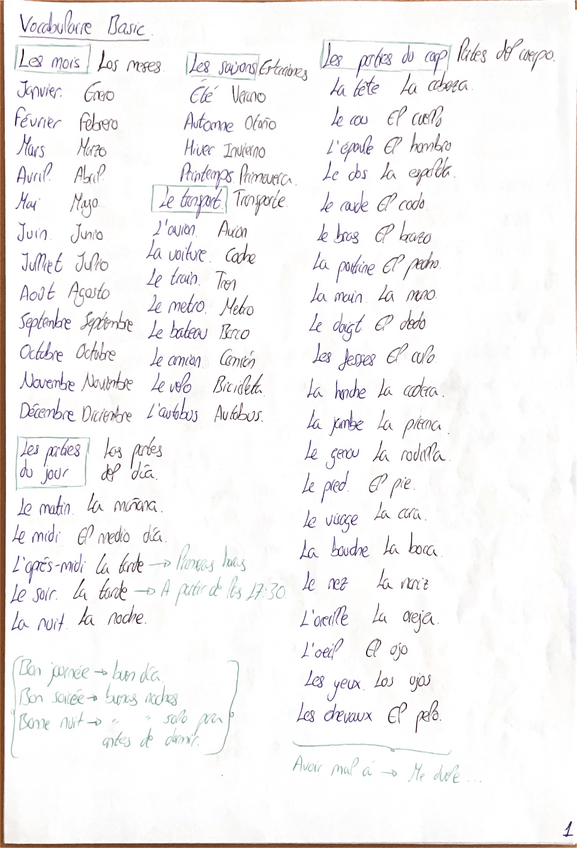 Vocabulaire Basic.
Les mois Los meses.
Janvier. Enero
Février Febrero
Mars Marzo
Avril. Abril
Mai Mayo
Juin. Junio
Juillet Julio
Août Agosto
Septembre Septiembre
Octobre Octubre
Novembre Noviembre
Décembre Diciembre
Les parties Las partes
du jour del día.
Le matin. La mañana.
Le midi El medio día.
L'après-midi La tarde → Primeras horas
Le soir. La tarde → A partir de las 17:30
La nuit. La noche.
Bon journée → buen día.
Bon soirée → buenas noches
Bonne nuit → " " solo para
antes de dormir.
Les saisons Estaciones
Eté Verano
Automne Otoño
Hiver Invierno
Printemps Primavera.
Le transport. Transporte
L'avion. Avión
La voiture. Coche
Le train. Tren
Le metro. Metro
Le bateau Barco
Le camion Camión
Le velo Bicicleta
L'autobus Autobus.
Les parties du corp Partes del cuerpo.
La tête La cabeza.
Le cou El cuello
L'épaule El hombro
Le dos La espalda.
Le coude El codo
Le bras El brazo
La poitrine El pecho.
La main La mano.
Le doigt El dedo
Les fesses El culo
La hanche La cadera.
La jambe La pierna.
Le genou La rodilla.
Le pied. El pie.
Le visage La cara.
La bouche La boca.
Le nez La nariz
L'oreille La oreja.
L'oeil El ojo
Les yeux. Los ojos
Les chevaux El pelo.
Avoir mal à → Me duele...
1